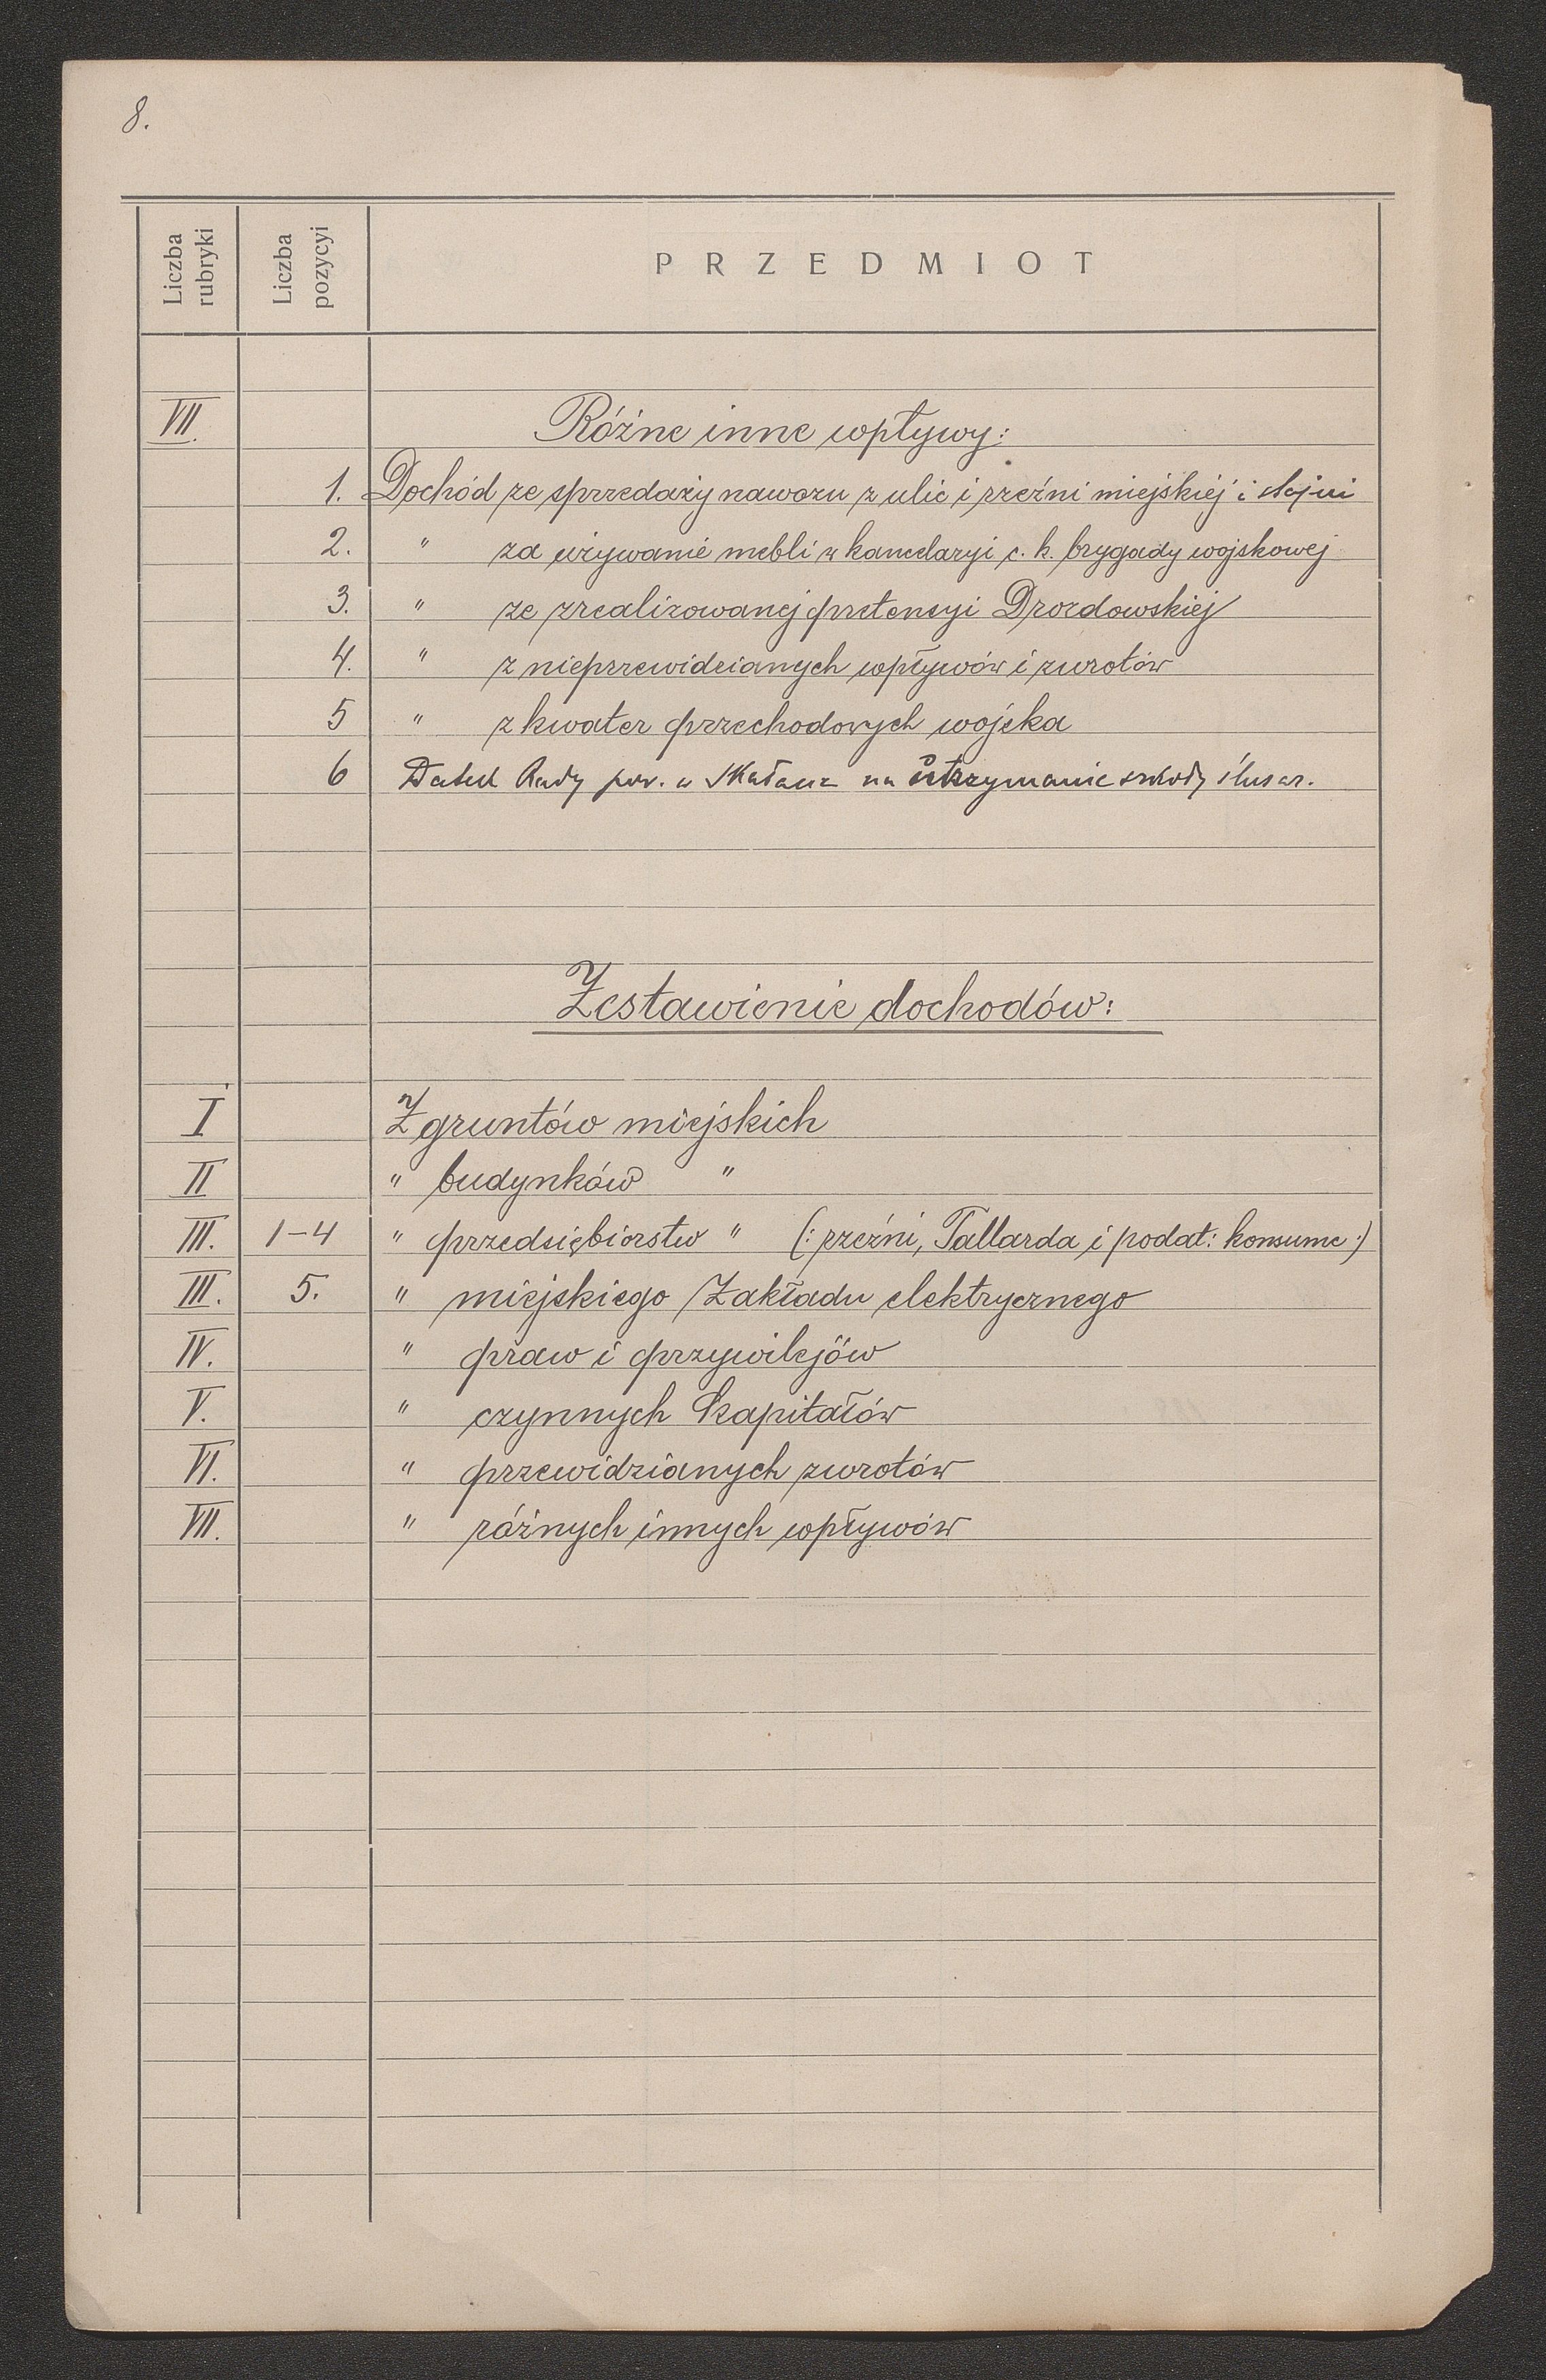 8.
Liczba rubryki
Liczba pozycyi
PRZEDMIOT
VII. Różne inne wpływy:
1. Dochód ze sprzedaży nawozu z ulic i rzeźni miejskiej i stajni
2. " za używanie mebli w kancelaryi c. k. brygady wojskowej
3. " ze zrealizowanej pretensyi Drozdowskiej
4. " z nieprzewidzianych wpływów i zwrotów
5 " z kwater przechodowych wojska
6 Datek Rady pow. w Skałacie na utrzymanie szkoły ślusar.
Zestawienie dochodów:
I Z gruntów miejskich
II " budynków "
III. 1-4 " przedsiębiorstw " (: rzeźni, Tallarda i podat: konsumc :)
III. 5. " miejskiego Zakładu elektrycznego
IV. " praw i przywilejów
V. " czynnych kapitałów
VI. " przewidzianych zwrotów
VII. " różnych innych wpływów